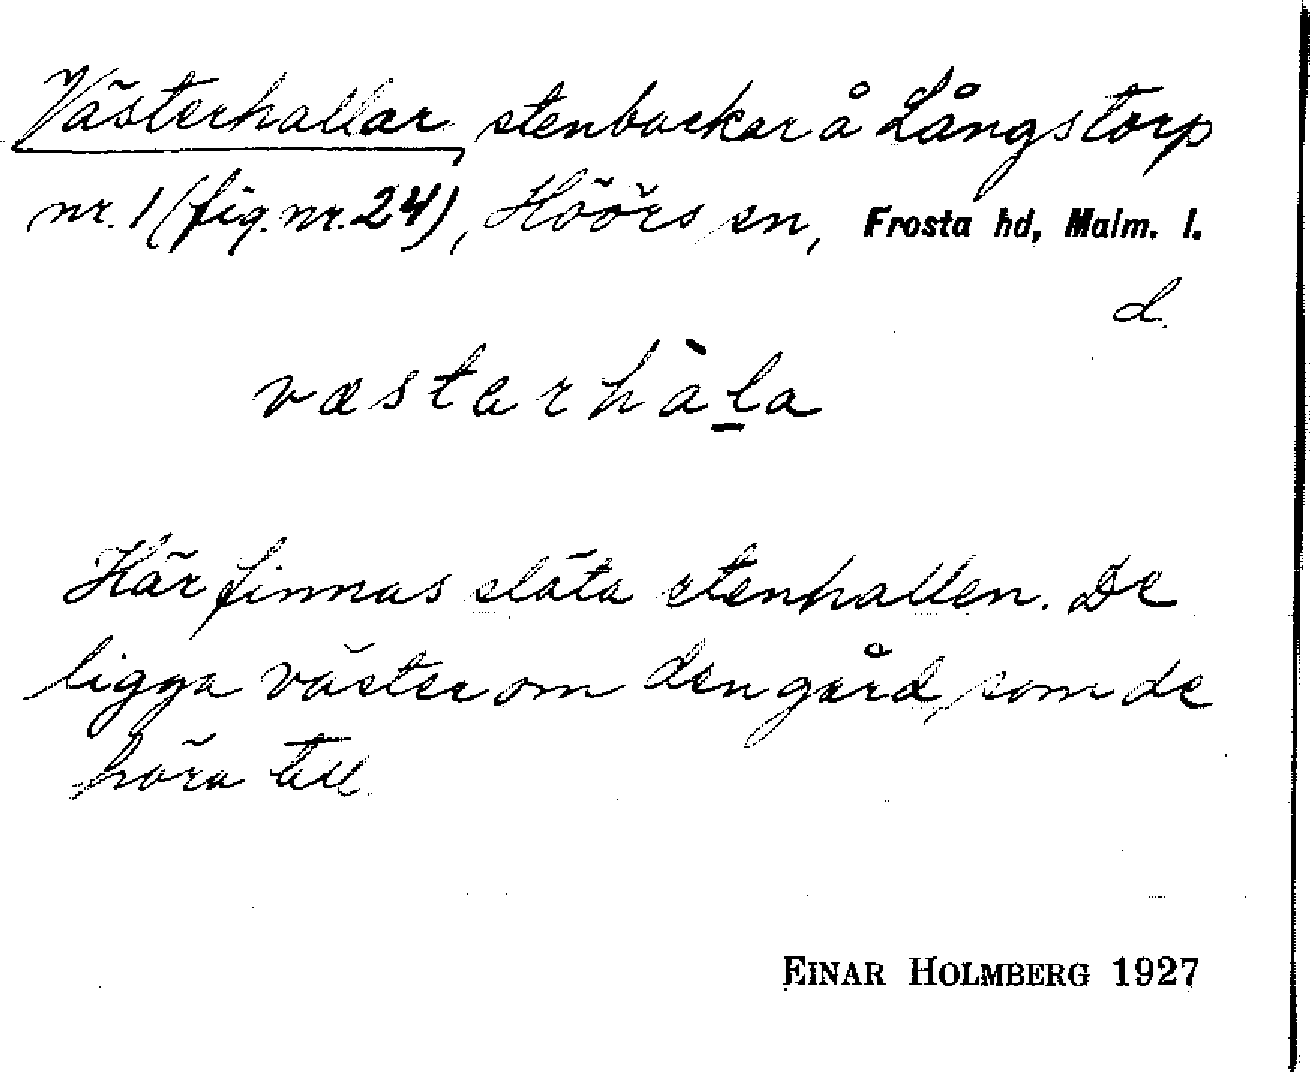 Västerhallar, stenbackar å Långstorp
nr. 1 (fig. nr. 24), Höörs sn, Frosta hd, Malm. l.
d.
væstarhàl̠a
Här finnas släta stenhallen. De
ligga väster om den gård, som de
höra till.
EINAR HOLMBERG 1927